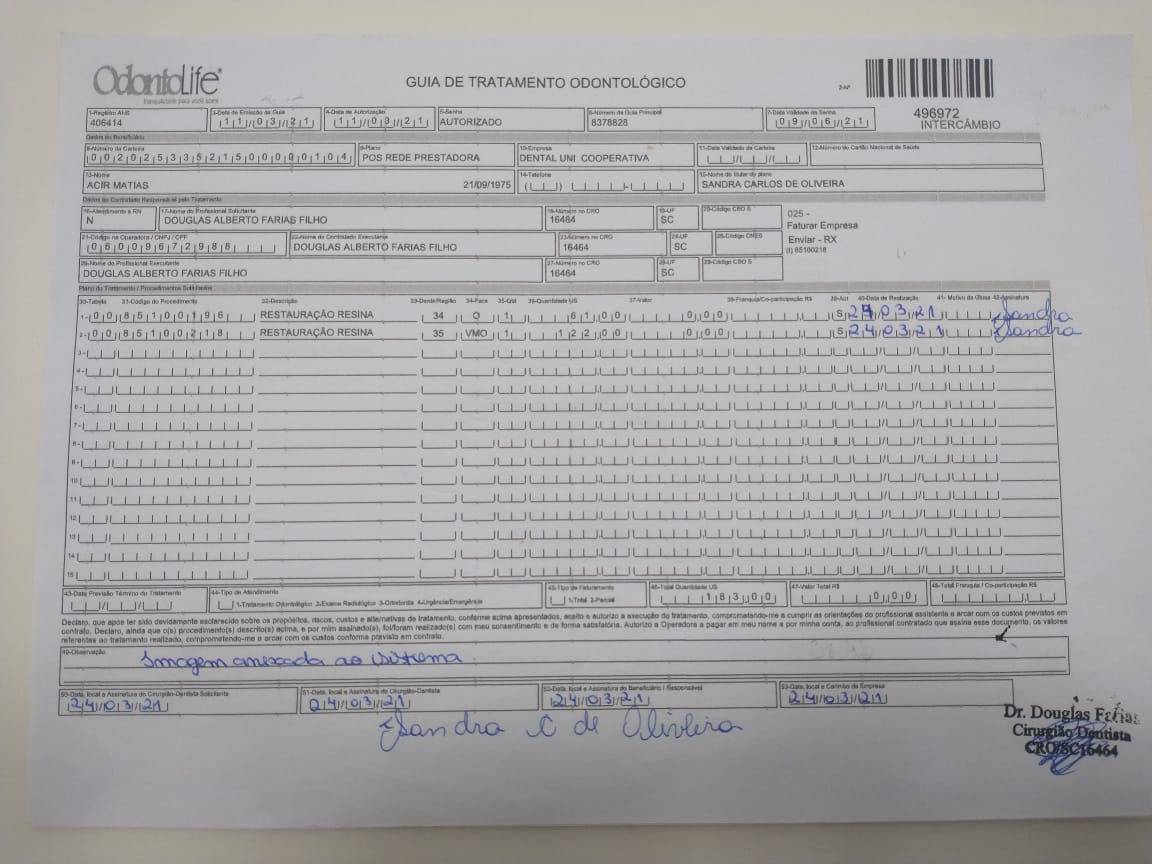 OdontoLife
tranquilidade para você sorrir
GUIA DE TRATAMENTO ODONTOLÓGICO
2-Nº
496972
INTERCÂMBIO
1-Registro ANS 3-Data de Emissão da Guia 4-Data de Autorização 5-Senha 6-Número da Guia Principal 7-Data Validade da Senha
406414 11/03/21 11/03/21 AUTORIZADO 8378828 09/06/21
Dados do Beneficiário
8-Número da Carteira 9-Plano 10-Empresa 11-Data Validade da Carteira 12-Número do Cartão Nacional de Saúde
00202533521500000104 POS REDE PRESTADORA DENTAL UNI COOPERATIVA
13-Nome 14-Telefone 15-Nome do titular do plano
ACIR MATIAS 21/09/1975 SANDRA CARLOS DE OLIVEIRA
Dados do Contratado Responsável pelo Tratamento
16-Atendimento a RN 17-Nome do Profissional Solicitante 18-Número no CRO 19-UF 20-Código CBO S
N DOUGLAS ALBERTO FARIAS FILHO 16464 SC
025 -
Faturar Empresa
Enviar - RX
(I) 85100218
21-Código na Operadora / CNPJ / CPF 22-Nome do Contratado Executante 23-Número no CRO 24-UF 25-Código CNES
06009672988 DOUGLAS ALBERTO FARIAS FILHO 16464 SC
26-Nome do Profissional Executante 27-Número no CRO 28-UF 29-Código CBO S
DOUGLAS ALBERTO FARIAS FILHO 16464 SC
Plano de Tratamento / Procedimentos Solicitados
30-Tabela 31-Código do Procedimento 32-Descrição 33-Dente/Região 34-Face 35-Qtd 36-Quantidade US 37-Valor 38-Franquia/Co-participação R$ 39-Aut 40-Data de Realização 41- Motivo da Glosa 42-Assinatura
1- 00 85100196 RESTAURAÇÃO RESINA 34 O 1 61,00 0,00 S 24/03/21 Sandra
2- 00 85100218 RESTAURAÇÃO RESINA 35 VMO 1 122,00 0,00 S 24/03/21 Sandra
3-
4-
5-
6-
7-
8-
9-
10
11
12
13
14
15
43-Data Previsão Término do Tratamento 44-Tipo de Atendimento 45-Tipo de Faturamento 46-Total Quantidade US 47-Valor Total R$ 48-Total Franquia / Co-participação R$
1-Tratamento Odontológico 2-Exame Radiológico 3-Ortodontia 4-Urgência/Emergência 1-Total 2-Parcial 183,00 0,00
Declaro, que após ter sido devidamente esclarecido sobre os propósitos, riscos, custos e alternativas de tratamento, conforme acima apresentados, aceito e autorizo a execução do tratamento, comprometendo-me a cumprir as orientações do profissional assistente e arcar com os custos previstos em
contrato. Declaro, ainda que o(s) procedimento(s) descrito(s) acima, e por mim assinado(s), foi/foram realizado(s) com meu consentimento e de forma satisfatória. Autorizo a Operadora a pagar em meu nome e por minha conta, ao profissional contratado que assina esse documento, os valores
referentes ao tratamento realizado, comprometendo-me a arcar com os custos conforme previsto em contrato.
49-Observação
Imagem anexada ao sistema
50-Data, local e Assinatura do Cirurgião-Dentista Solicitante 51-Data, local e Assinatura do Cirurgião-Dentista 52-Data, local e Assinatura do Beneficiário / Responsável 53-Data, local e Carimbo da Empresa
24/03/21 24/03/21 24/03/21 24/03/21
Sandra C de Oliveira
Dr. Douglas Farias
Cirurgião Dentista
CRO/SC16464